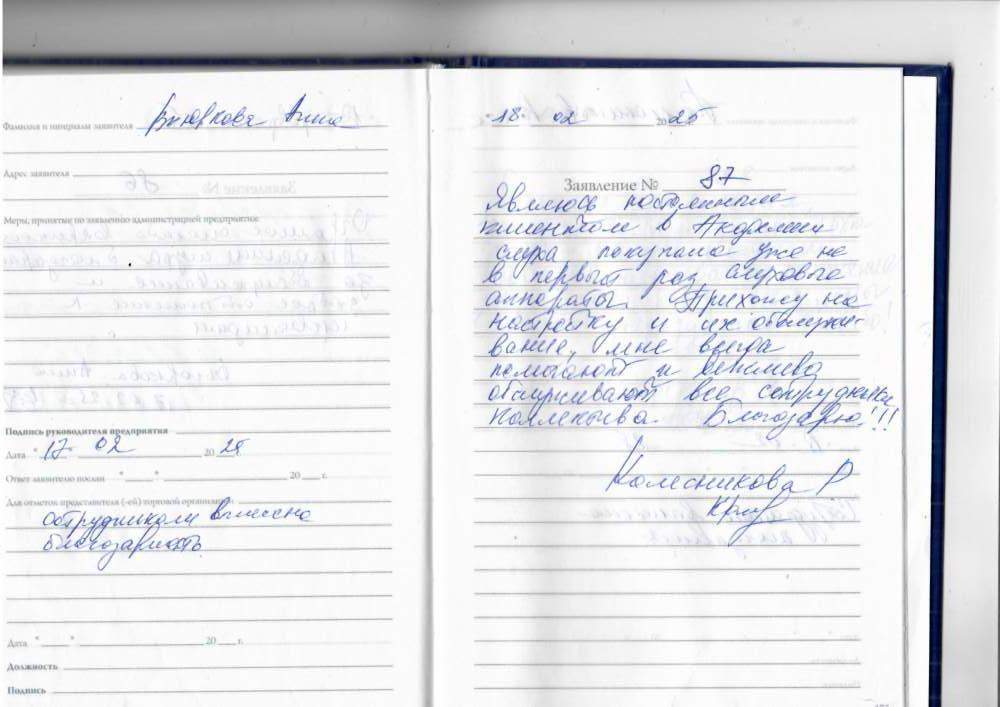 Фамилия и инициалы заявителя Вьюркова Анна
Адрес заявителя
Меры, принятые по заявлению администрацией предприятия:
Подпись руководителя предприятия
Дата "17" 02 2025
Ответ заявителю послан " " 20 г.
Для отметок представителя (-ей) торговой организации:
сотрудникам вынесена
благодарность
Дата " " 20 г.
Должность
Подпись
"18" 02 2025
Заявление № 87
Являюсь постоянным
клиентом в Академии
слуха покупала уже не
в первый раз слуховые
аппараты. Прихожу на
настройку и их обслужи-
вание, мне всегда
помогают и вежливо
обслуживают все сотрудники
коллектива. Благодарю!!!
Колесникова Р